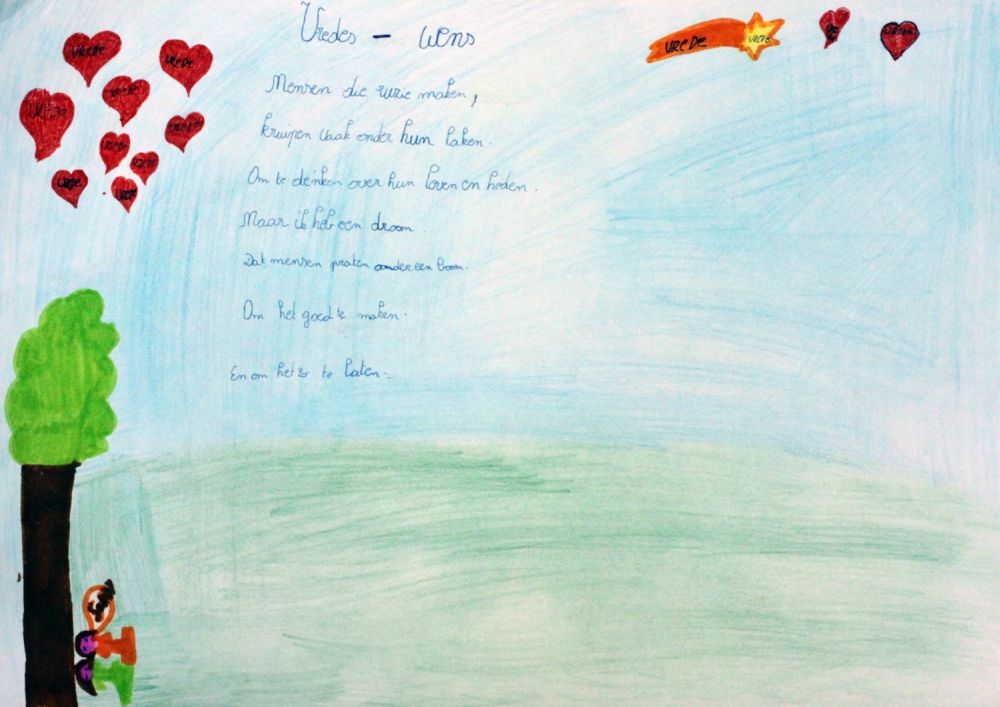 Vredes - wens
VREDE
VREDE
VREDE
VREDE
VREDE
VREDE
VREDE
VREDE
VREDE
VREDE
VREDE
VREDE
Mensen die ruzie maken,
kruipen vaak onder hun laken.
Om te denken over hun
en heden.
Maar ik heb een droom
Dat mensen praten onder een boom.
Om het goed te maken.
En om het zo te laten.